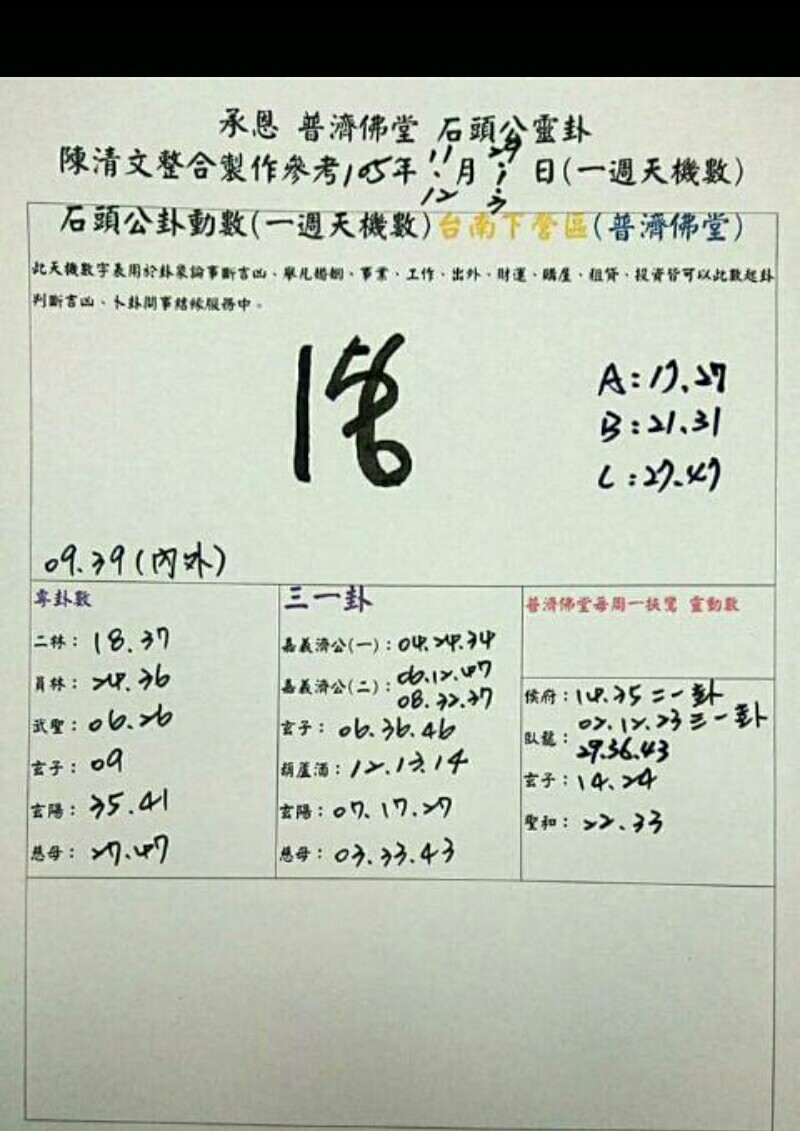 承恩 普濟佛堂 石頭公靈卦
陳清文整合製作參考105年11.12月29.1.3日(一週天機數)
石頭公卦動數(一週天機數)台南下營區(普濟佛堂)
此天機數字表用於卦象論事斷吉凶、舉凡婚姻、事業、工作、出外、財運、購屋、租賃、投資皆可以此數起卦
判斷吉凶、卜卦問事結緣服務中。
A:17.27
B:21.31
C:27.47
09.39(內外)
專卦數
二林:18.37
員林:24.36
武聖:06.26
玄子:09
玄陽:35.41
慈母:27.47
三一卦
嘉義濟公(一):04.24.34
嘉義濟公(二):06.12.47
08.32.37
玄子:06.36.46
葫蘆酒:12.13.14
玄陽:07.17.27
慈母:03.33.43
普濟佛堂每周一扶鸞 靈動數
侯府:14.35二一卦
臥龍:02.12.23三一卦
29.36.43
玄子:14.24
聖和:22.33